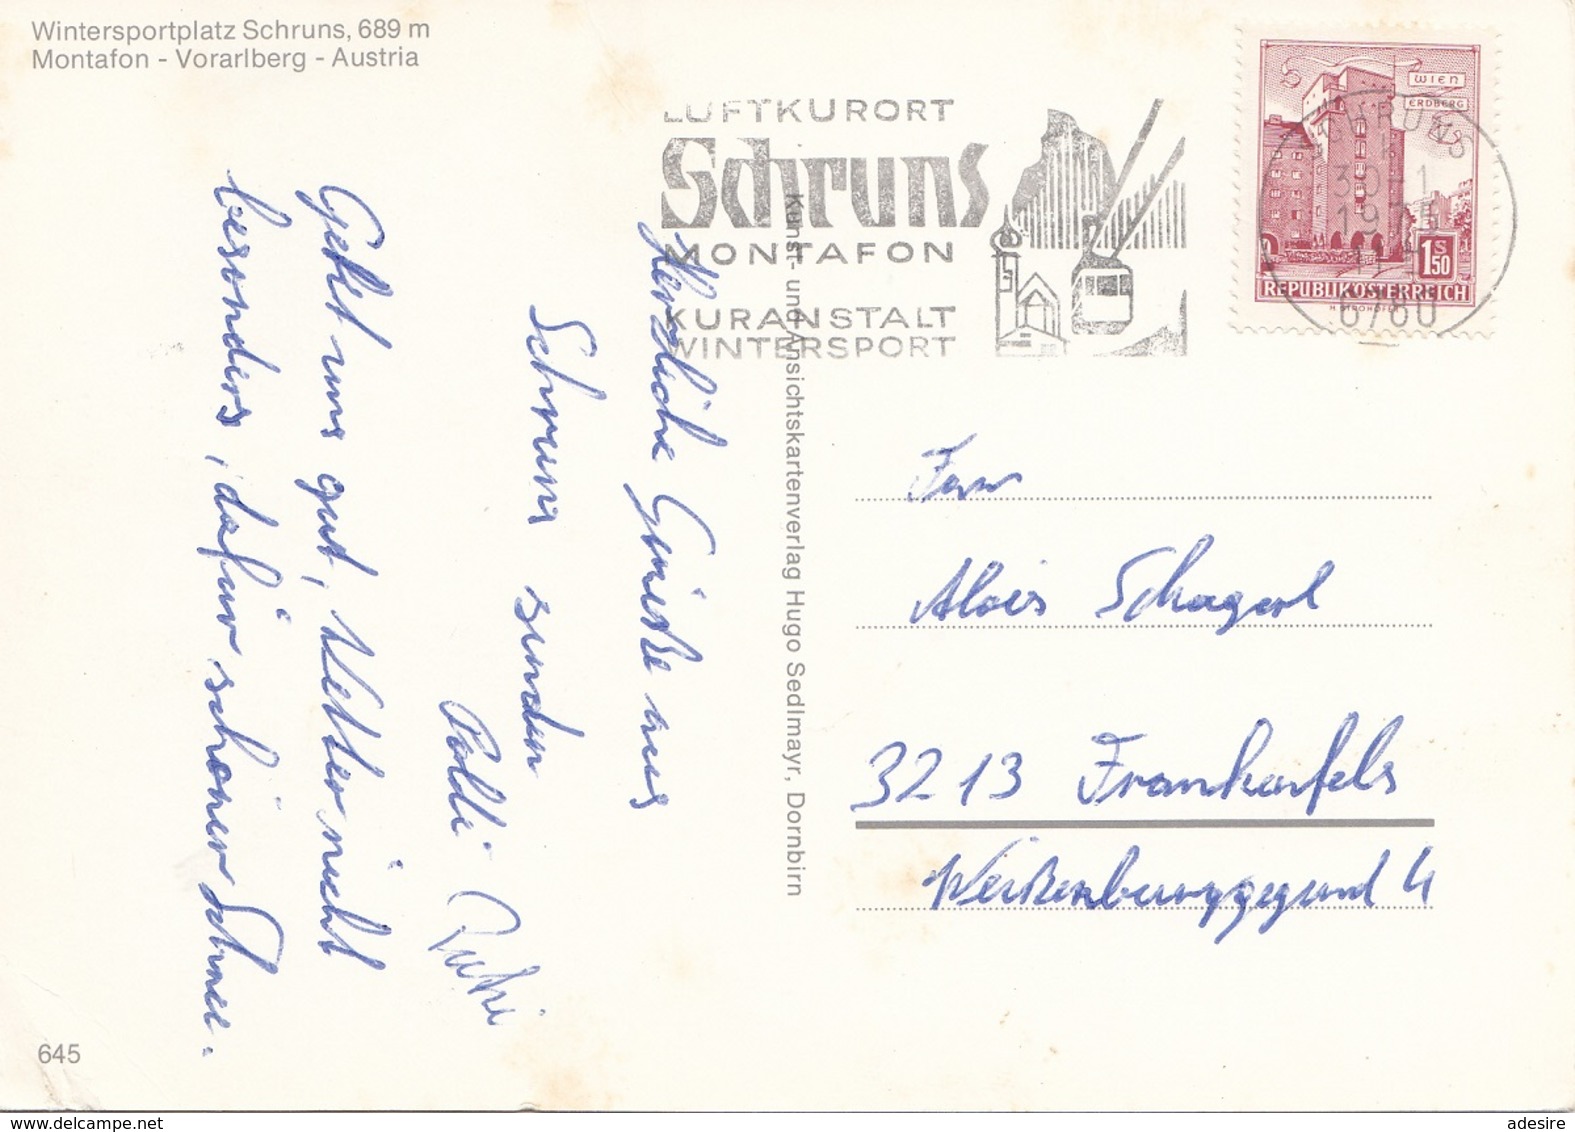 Wintersportplatz Schruns, 689 m
Montafon - Vorarlberg - Austria
LUFTKURORT
Schruns
MONTAFON
KURANSTALT
WINTERSPORT
WIEN
ERDBERG
1 S 50
REPUBLIK ÖSTERREICH
SCHRUNS
30. 1
1975
6780
Herzliche Grüße aus
Schruns senden
Poldi
Geht uns gut, Wetter nicht
besonders, dafür schöner Schnee.
Kunst- und Ansichtskartenverlag Hugo Sedlmayr, Dornbirn
Alois Schagerl
3213 Frankenfels
Weißenburggegend 4
645
adesire